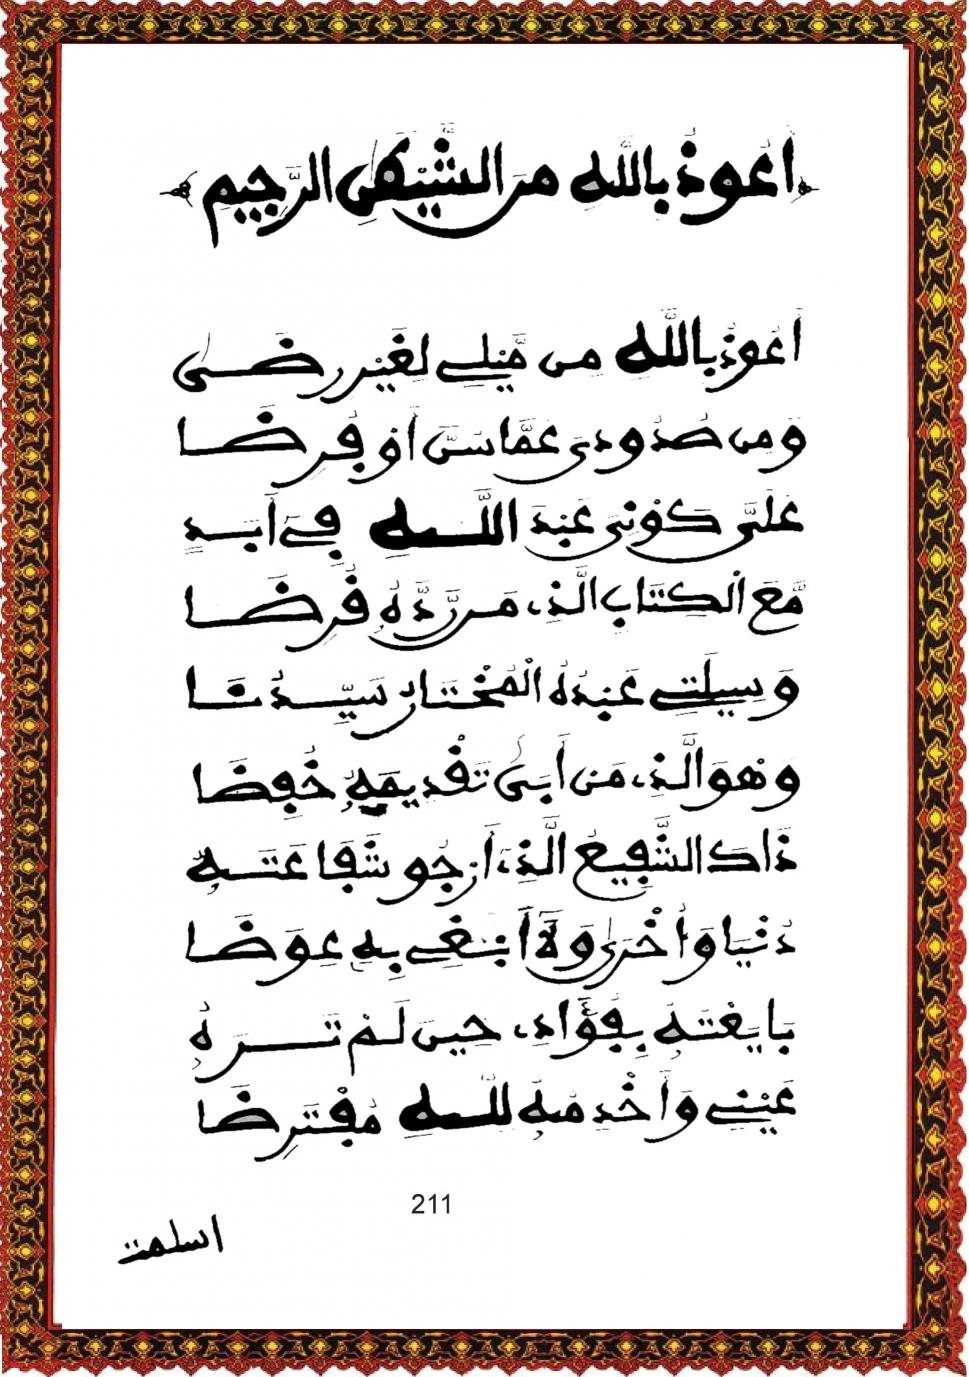 أَعُوذُ بِاللَّهِ مِنَ الشَّيْطَٰنِ الرَّجِيمِ
أَعُوذُ بِاللَّهِ مِن مَّيْلِي لِغَيْرِ رِضَىٰ
وَمِن صُدُودِيَ عَمَّا سَنَّ أَوْ فَرَضَا
عَلَيَّ كَوْنِيَ عَبْدَ اللَّهِ فِي أَبَدٍ
مَّعَ الْكِتَابِ الَّذِي مَن رَّدَّهُ فُرِضَا
وَسِيلَتِي عَبْدُهُ الْمُخْتَارُ سَيِّدُنَا
وَهُوَ الَّذِي مَنْ أَبَىٰ تَقْدِيمَهُ خُفِضَا
ذَاكَ الشَّفِيعُ الَّذِي أَرْجُو شَفَاعَتَهُ
دُنْيَا وَأُخْرَىٰ وَلَا أَبْغِي بِهِ عِوَضَا
بَايَعْتُهُ بِفُؤَادِي حِينَ لَمْ تَرَهُ
عَيْنِي وَأَخْدُمُهُ لِلَّهِ مُفْتَرِضَا
211
اسلمت